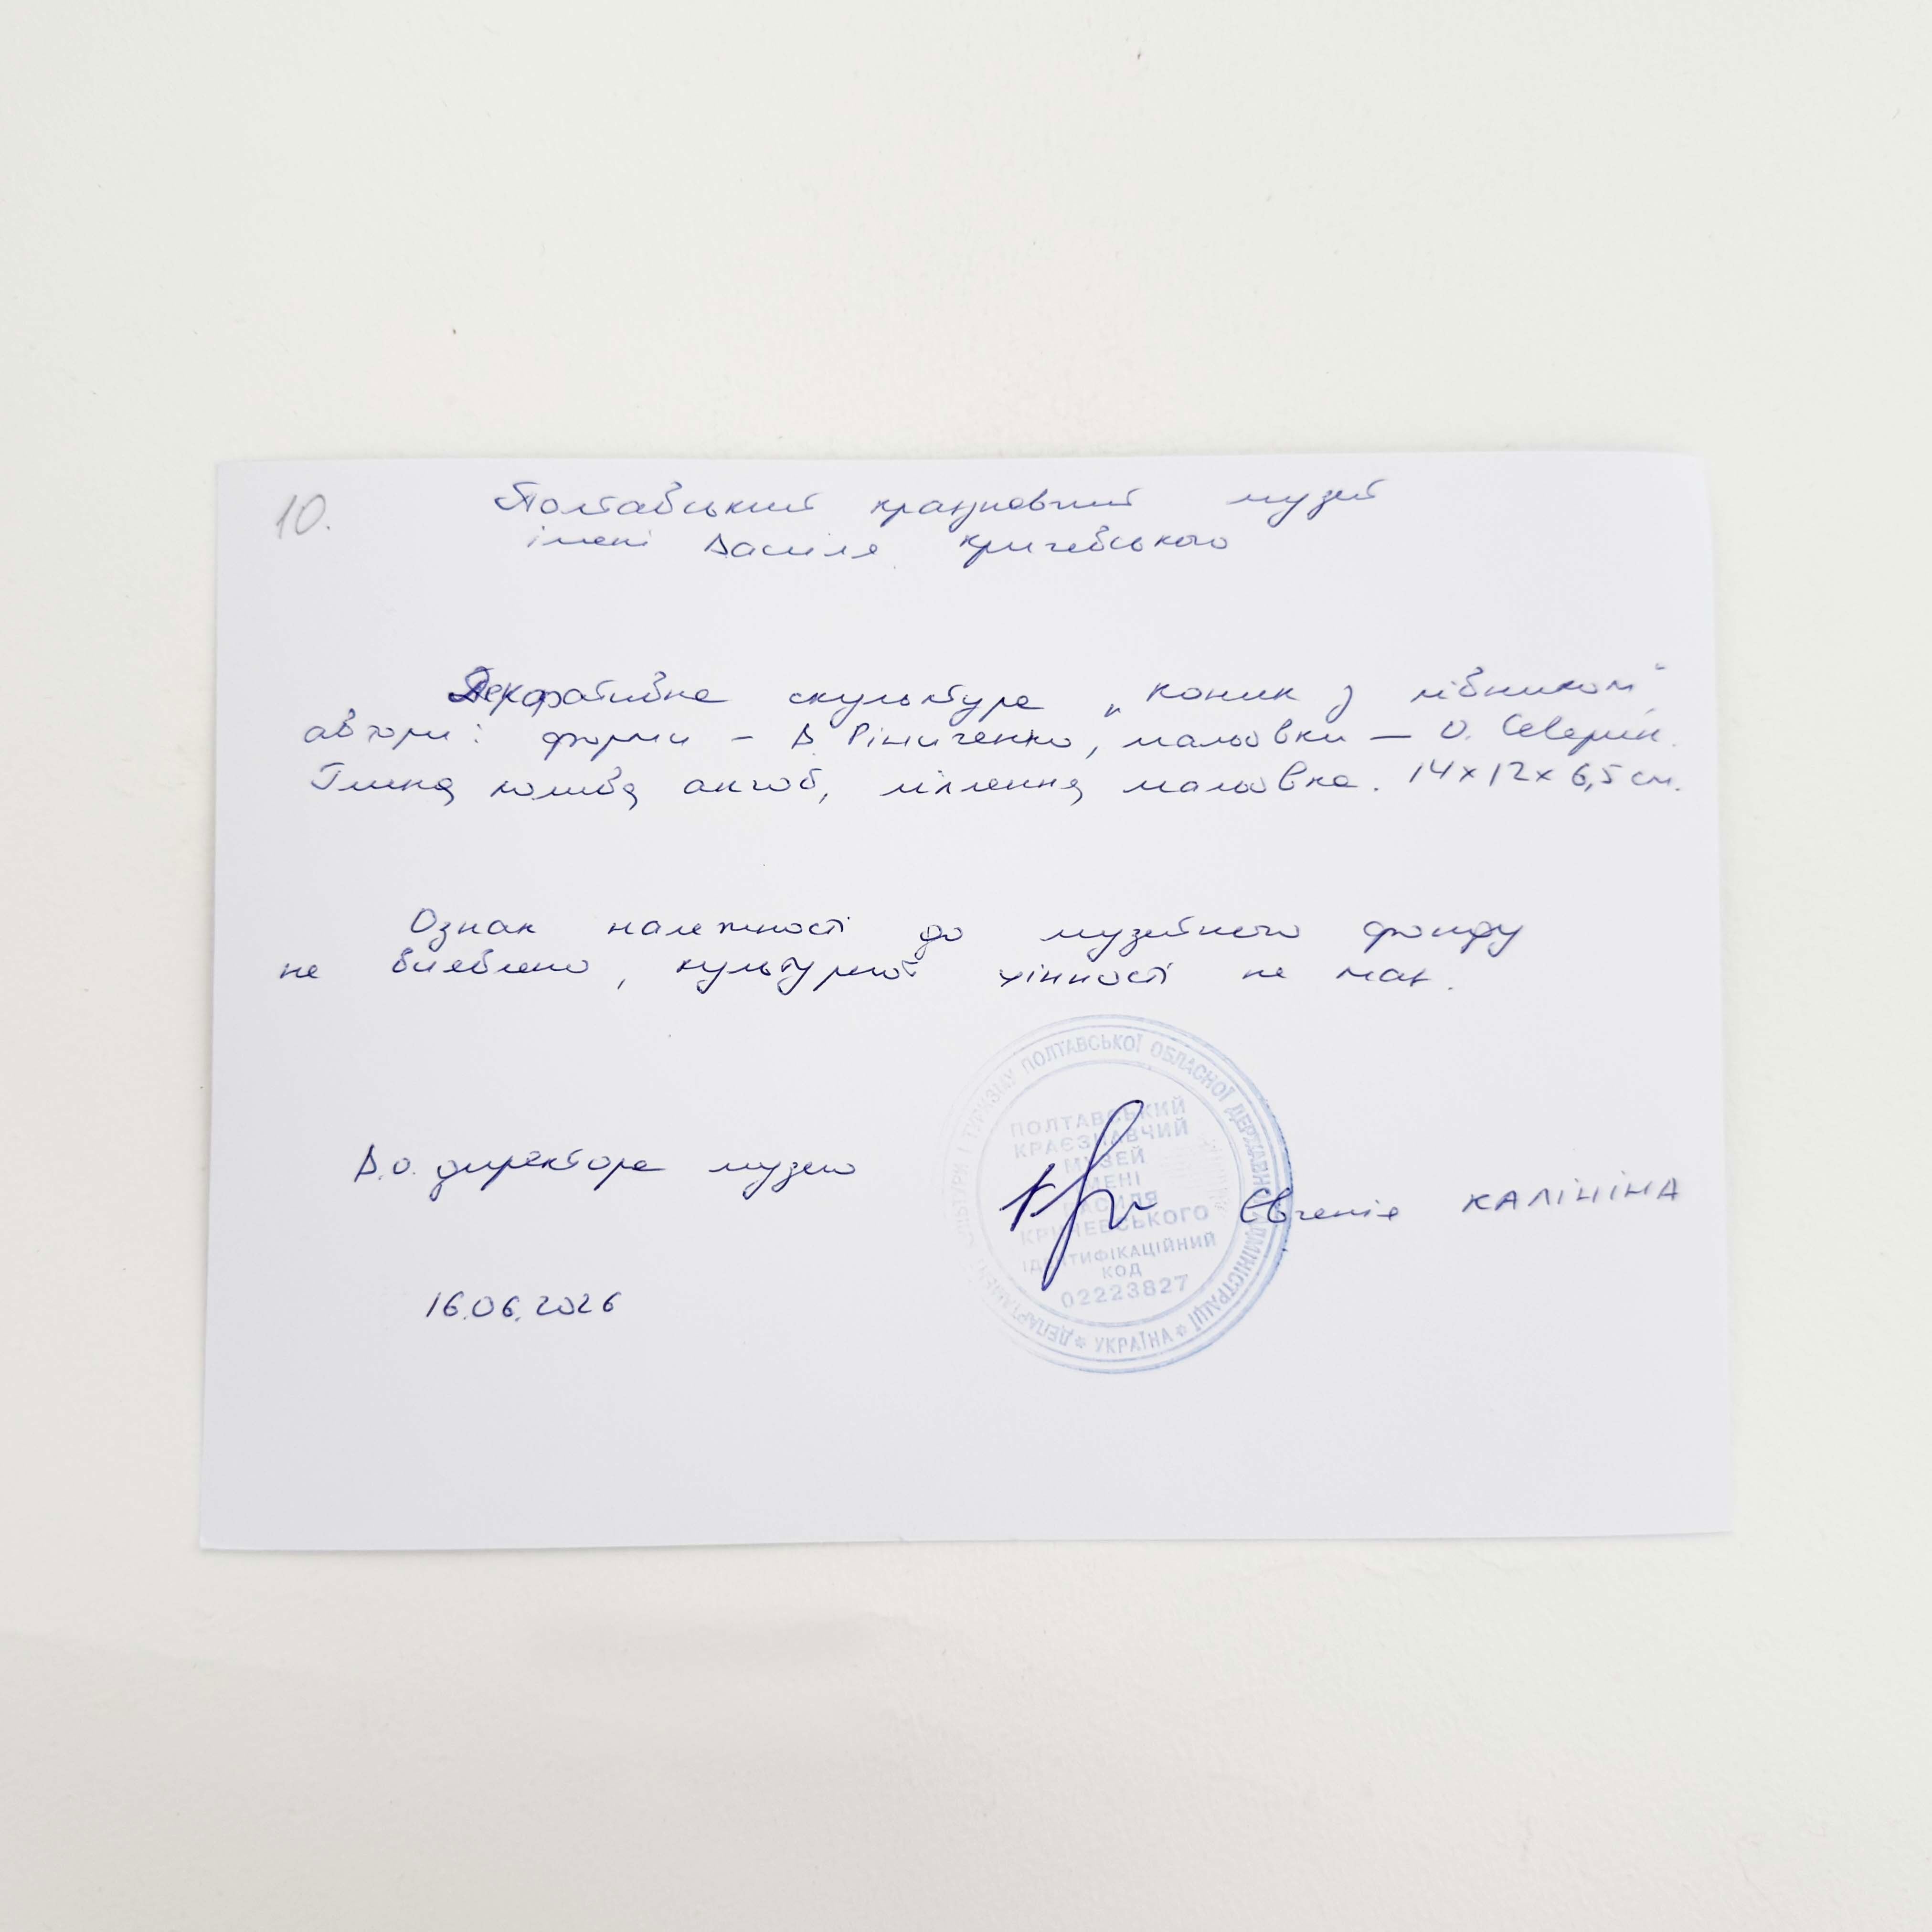 10.
Полтавський краєзнавчий музей
імені Василя Кричевського
Декоративна скульптура „Коник з півником"
автори: форми – В. Ріпиченко, мальовки — О. Северін.
Глина, полива, ангоб, ліплення, мальовка. 14х12х6,5 см.
Ознак належності до музейного фонду
не виявлено, культурної цінності не має.
В.о. директора музею
Євгенія КАЛІНІНА
16.06.2026
КУЛЬТУРИ І ТУРИЗМУ ПОЛТАВСЬКОЇ ОБЛАСНОЇ ДЕРЖАВНОЇ АДМІНІСТРАЦІЇ * УКРАЇНА * ДЕПАРТАМЕНТ
ПОЛТАВСЬКИЙ
КРАЄЗНАВЧИЙ
МУЗЕЙ
ІМЕНІ
ВАСИЛЯ
КРИЧЕВСЬКОГО
ІДЕНТИФІКАЦІЙНИЙ
КОД
02223827